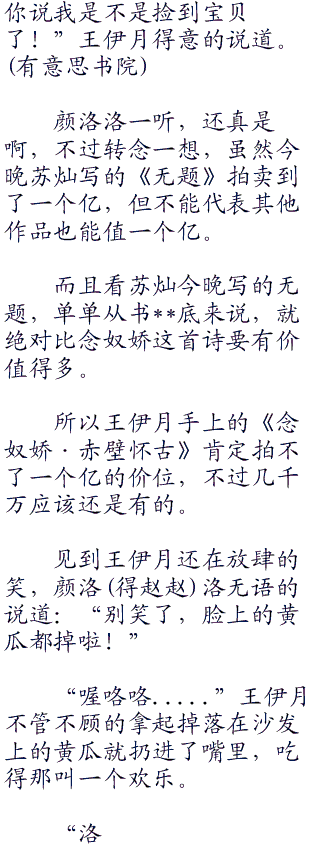 你说我是不是捡到宝贝
了！”王伊月得意的说道。
(有意思书院)
颜洛洛一听，还真是
啊，不过转念一想，虽然今
晚苏灿写的《无题》拍卖到
了一个亿，但不能代表其他
作品也能值一个亿。
而且看苏灿今晚写的无
题，单单从书**底来说，就
绝对比念奴娇这首诗要有价
值得多。
所以王伊月手上的《念
奴娇·赤壁怀古》肯定拍不
了一个亿的价位，不过几千
万应该还是有的。
见到王伊月还在放肆的
笑，颜洛(得赵赵)洛无语的
说道：“别笑了，脸上的黄
瓜都掉啦！”
“喔咯咯.....”王伊月
不管不顾的拿起掉落在沙发
上的黄瓜就扔进了嘴里，吃
得那叫一个欢乐。
“洛